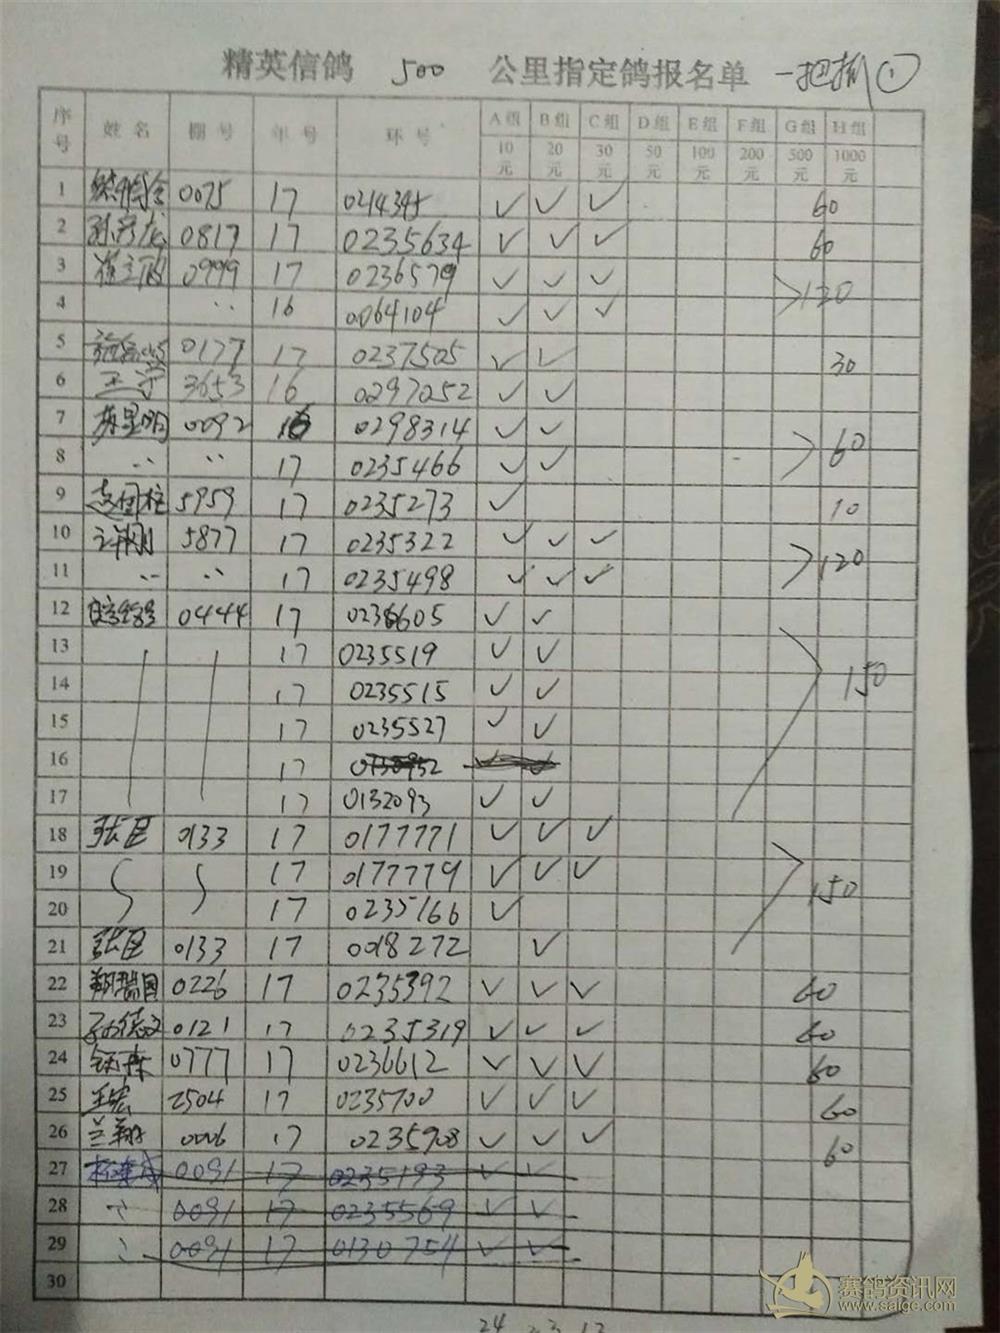 精英信鸽 500 公里指定鸽报名单 一把抓①
序号 姓名 棚号 年号 环号 A组 B组 C组 D组 E组 F组 G组 H组
10元 20元 30元 50元 100元 200元 500元 1000元
1 0075 17 0214345 ✓ ✓ ✓ 60
2 孙彦龙 0817 17 0235634 ✓ ✓ ✓ 60
3 0999 17 0236579 ✓ ✓ ✓ 120
4 〃 16 0064104 ✓ ✓ ✓
5 0177 17 0237505 ✓ ✓ 30
6 3653 16 0297252 ✓ ✓
7 0092 16 0298314 ✓ ✓ 60
8 〃 〃 17 0235466 ✓ ✓
9 5959 17 0235273 ✓ 10
10 许刚 5877 17 0235322 ✓ ✓ ✓ 120
11 〃 〃 17 0235498 ✓ ✓ ✓
12 0444 17 0236605 ✓ ✓
13 17 0235519 ✓ ✓ 150
14 17 0235515 ✓ ✓
15 17 0235527 ✓ ✓
16 17 ✓ ✓
17 17 0132093 ✓ ✓
18 张臣 0133 17 0177771 ✓ ✓ ✓
19 17 0177779 ✓ ✓ ✓ 150
20 17 0235166 ✓
21 张臣 0133 17 0018272 ✓
22 翔瑞国 0226 17 0235392 ✓ ✓ ✓ 60
23 孙德文 0121 17 0235319 ✓ ✓ ✓ 60
24 0777 17 0236612 ✓ ✓ ✓ 60
25 王宏 2504 17 0235700 ✓ ✓ ✓ 60
26 兰翔 0006 17 0235908 ✓ ✓ ✓ 60
27 0091 17 0235193 ✓ ✓
28 〃 0091 17 0235569 ✓ ✓
29 〃 0091 17 0130754 ✓ ✓
30
24 23 13
赛鸽资讯网
www.saige.com